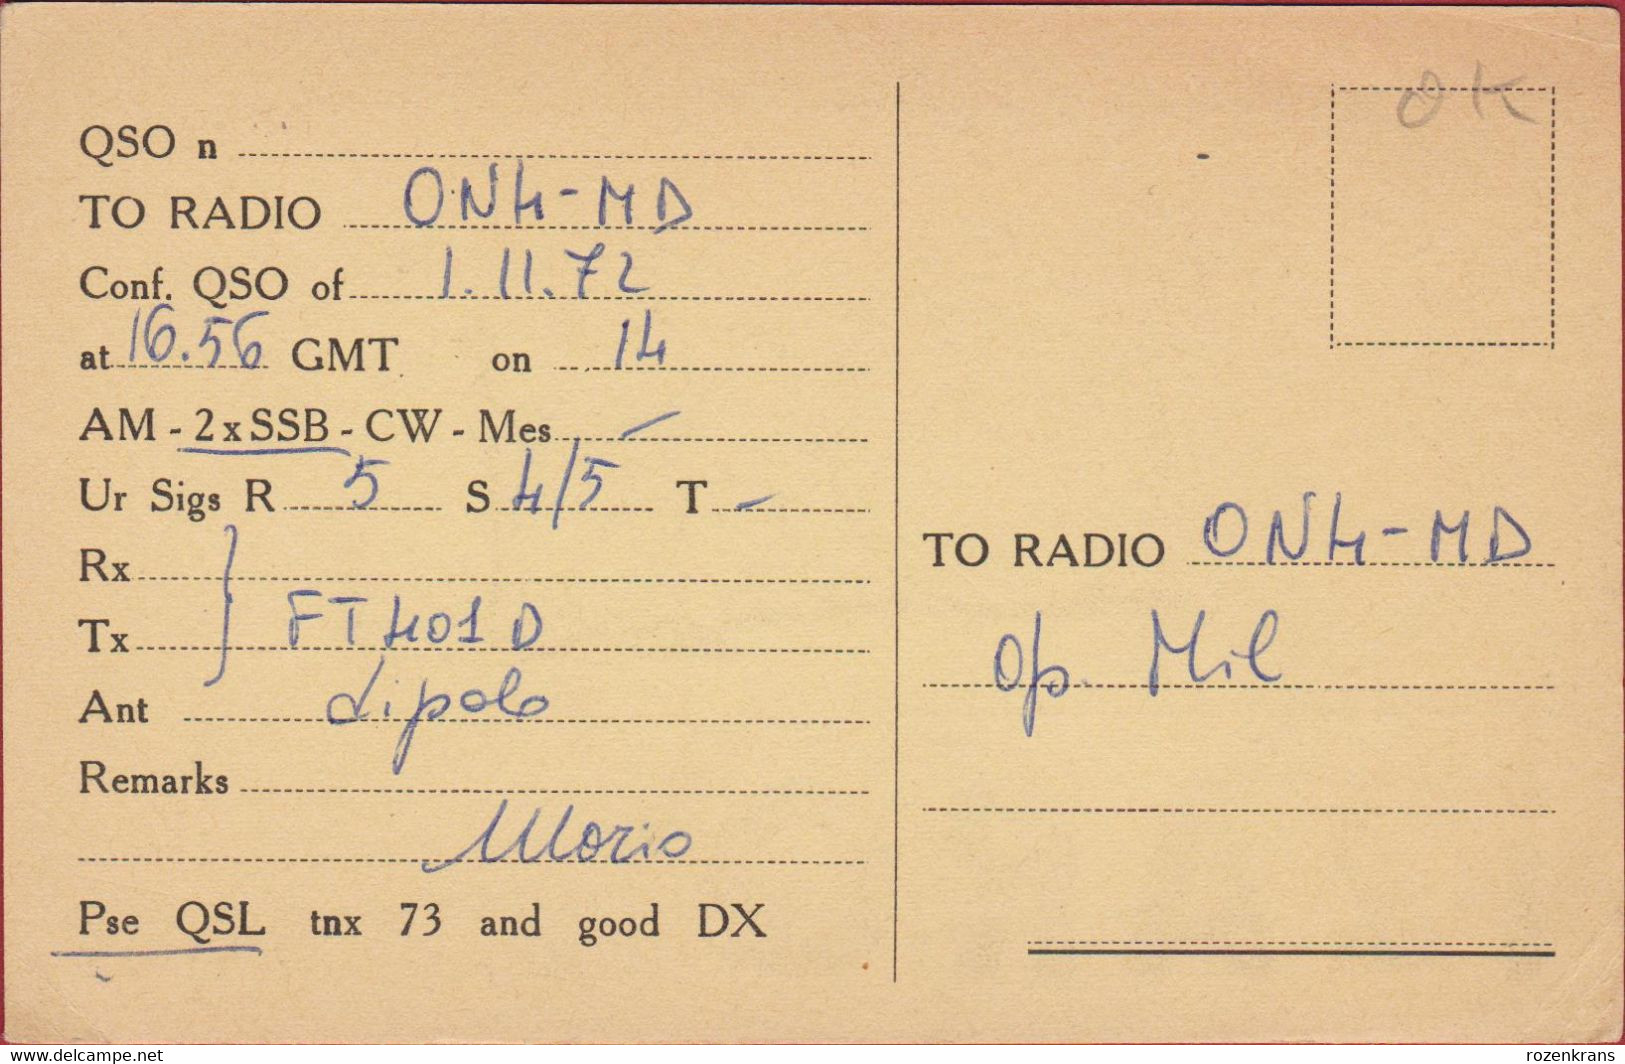 QSO n
TO RADIO ON4-MD
Conf. QSO of 1.11.72
at 16.56 GMT on 14
AM - 2xSSB - CW - Mes -
Ur Sigs R 5 S 4/5 T -
Rx
Tx } FT401D
Ant dipolo
Remarks
Mario
Pse QSL tnx 73 and good DX
OK
TO RADIO ON4-MD
op. Mil
delcampe.net
rozenkrans